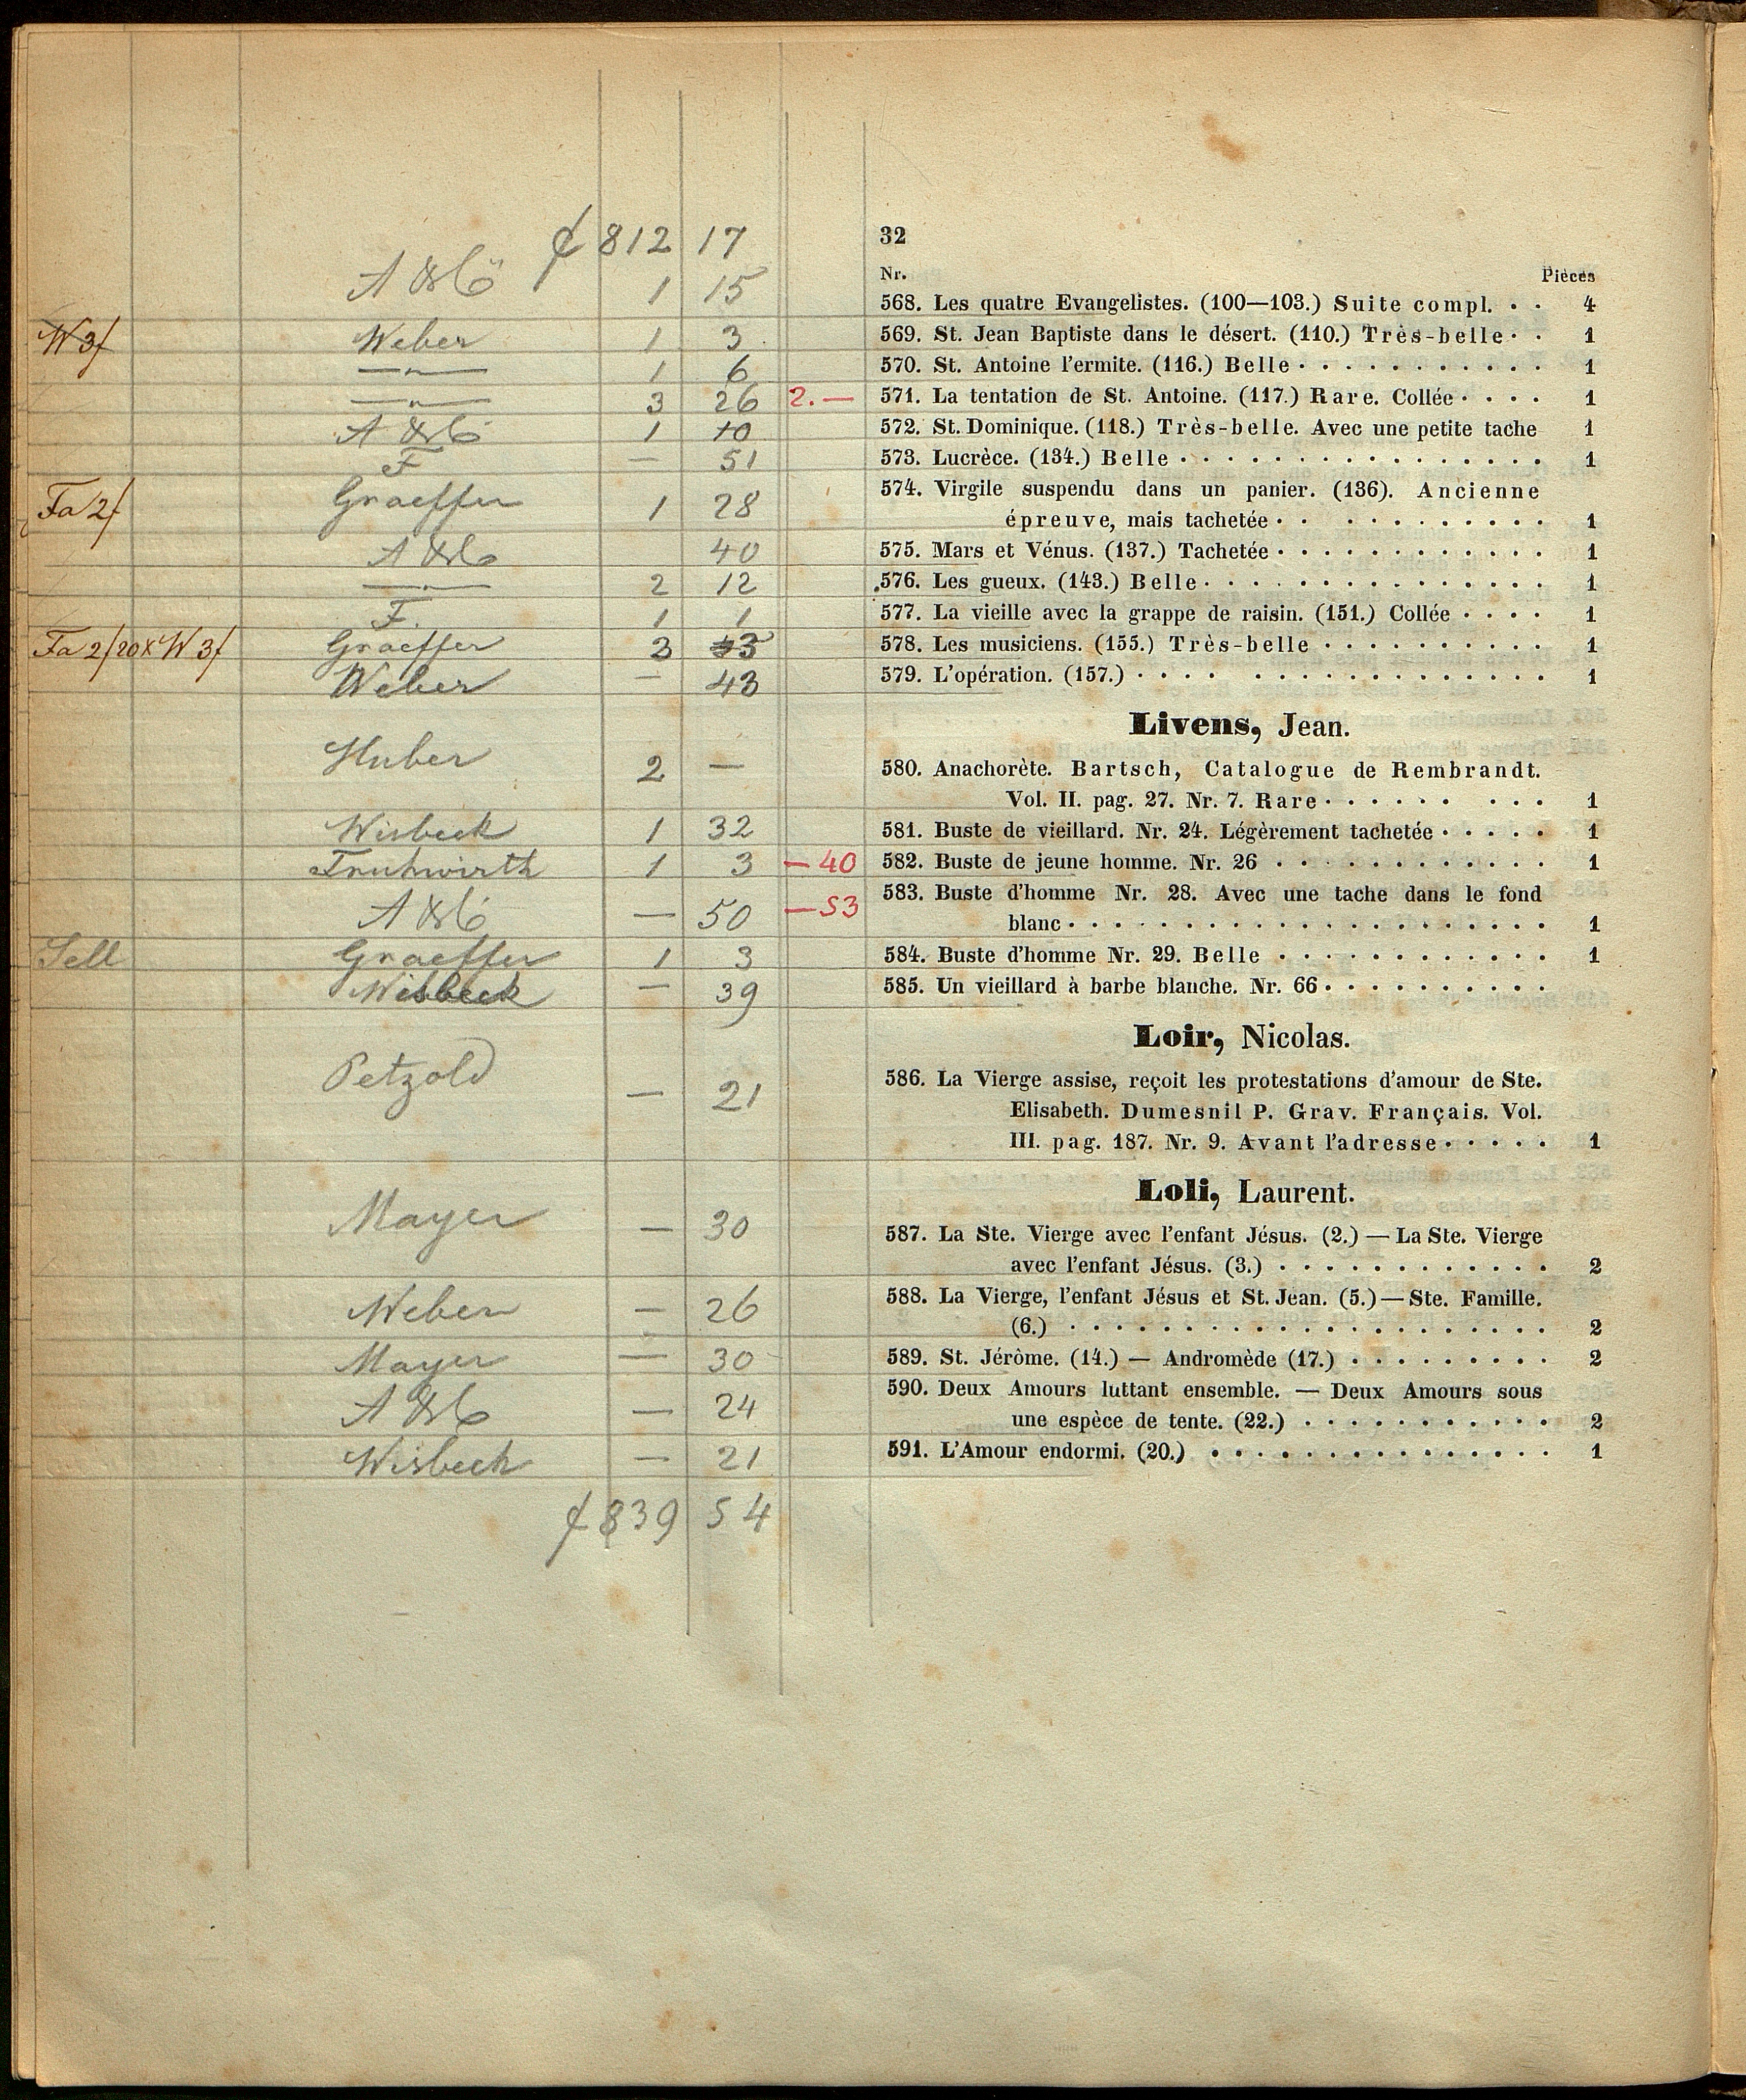 ƒ 812 17
32
Nr. Pièces
A & Co 1 15 568. Les quatre Evangelistes. (100—103.) Suite compl. . . 4
W 3f Weber 1 3 569. St. Jean Baptiste dans le désert. (110.) Très-belle . . 1
—"— 1 6 570. St. Antoine l'ermite. (116.) Belle . . . . . . . . . . . 1
—"— 3 26 2.— 571. La tentation de St. Antoine. (117.) Rare. Collée . . . . 1
A & Co 1 10 572. St. Dominique. (118.) Très-belle. Avec une petite tache 1
F — 51 573. Lucrèce. (134.) Belle . . . . . . . . . . . . . . . . 1
Fa 2f Graeffer 1 28 574. Virgile suspendu dans un panier. (136). Ancienne
épreuve, mais tachetée . . . . . . . . . . . 1
A & Co 40 575. Mars et Vénus. (137.) Tachetée . . . . . . . . . . . . 1
—"— 2 12 576. Les gueux. (143.) Belle . . . . . . . . . . . . . . . 1
F. 1 1 577. La vieille avec la grappe de raisin. (151.) Collée . . . . 1
Fa 2f 20x W 3f Graeffer 3 578. Les musiciens. (155.) Très-belle . . . . . . . . . . 1
Weber — 43 579. L'opération. (157.) . . . . . . . . . . . . . . . . . 1
Livens, Jean.
Huber 2 — 580. Anachorète. Bartsch, Catalogue de Rembrandt.
Vol. II. pag. 27. Nr. 7. Rare . . . . . . . . . 1
Wisbeck 1 32 581. Buste de vieillard. Nr. 24. Légèrement tachetée . . . . . 1
Fruhwirth 1 3 — 40 582. Buste de jeune homme. Nr. 26 . . . . . . . . . . . . 1
A & Co — 50 — 53 583. Buste d'homme Nr. 28. Avec une tache dans le fond
blanc . . . . . . . . . . . . . . . . . . . . . 1
Sell Graeffer 1 3 584. Buste d'homme Nr. 29. Belle . . . . . . . . . . . . 1
Wisbeck — 39 585. Un vieillard à barbe blanche. Nr. 66 . . . . . . . . . .
Loir, Nicolas.
Petzold — 21 586. La Vierge assise, reçoit les protestations d'amour de Ste.
Elisabeth. Dumesnil P. Grav. Français. Vol.
III. pag. 187. Nr. 9. Avant l'adresse . . . . . 1
Loli, Laurent.
Mayer — 30 587. La Ste. Vierge avec l'enfant Jésus. (2.) — La Ste. Vierge
avec l'enfant Jésus. (3.) . . . . . . . . . . . . 2
Weber — 26 588. La Vierge, l'enfant Jésus et St. Jean. (5.) — Ste. Famille.
(6.) . . . . . . . . . . . . . . . . . . . . . 2
Mayer — 30 589. St. Jérôme. (14.) — Andromède (17.) . . . . . . . . . 2
A & Co — 24 590. Deux Amours luttant ensemble. — Deux Amours sous
une espèce de tente. (22.) . . . . . . . . . . . 2
Wisbeck — 21 591. L'Amour endormi. (20.) . . . . . . . . . . . . . . . 1
ƒ 839 54